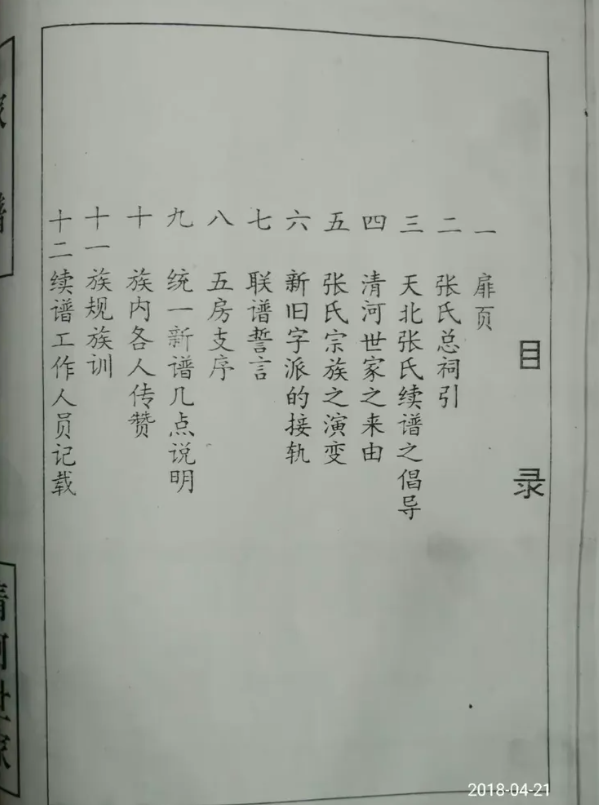 目录
一 扉页
二 张氏总祠引
三 天北张氏续谱之倡导
四 清河世家之来由
五 张氏宗族之演变
六 新旧字派的接轨
七 联谱誓言
八 五房支序
九 统一新谱几点说明
十 族内各人传赞
十一 族规族训
十二 续谱工作人员记载
谱
清河世家
2018-04-21